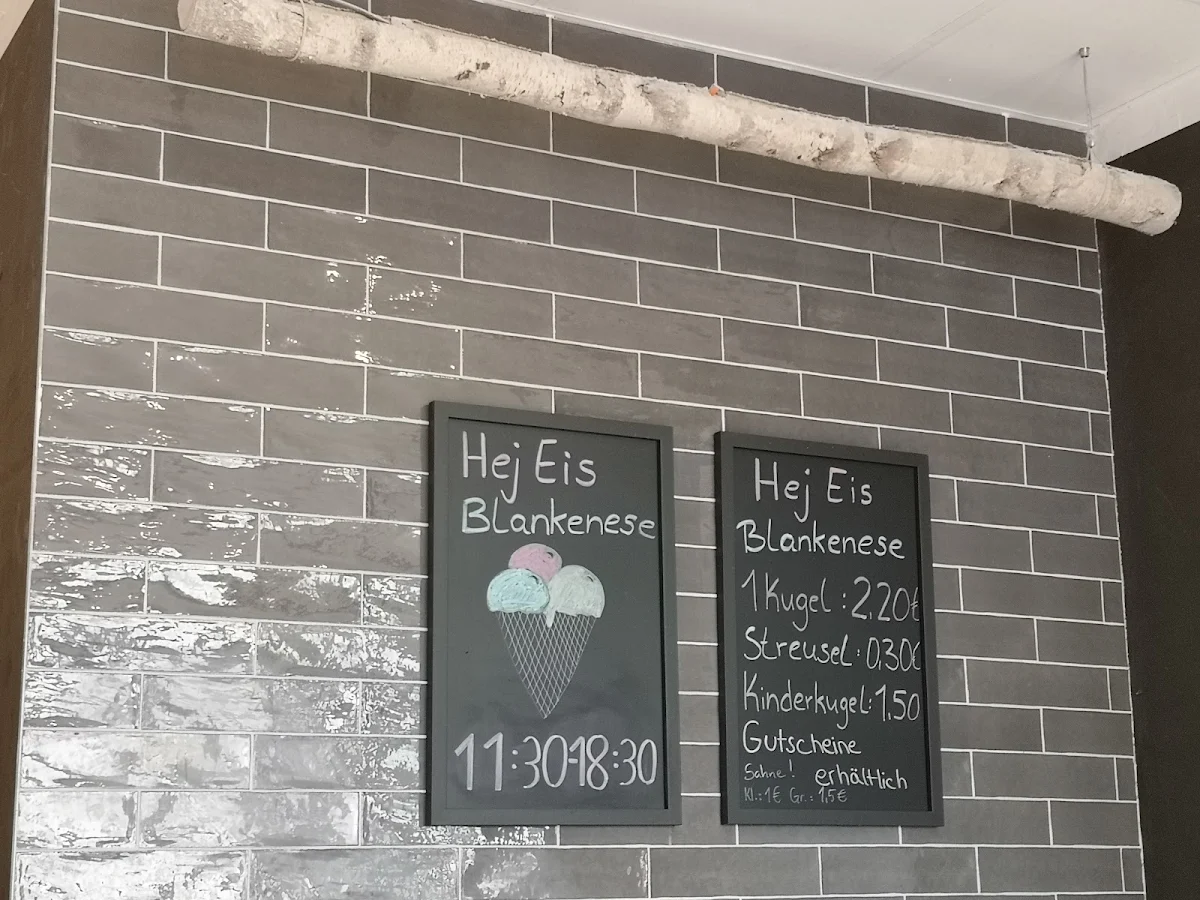 Hej Eis
Blankenese
11:30-18:30
Hej Eis
Blankenese
1 Kugel : 2,20€
Streusel : 0,30€
Kinderkugel: 1,50
Gutscheine
Sahne! erhältlich
Kl.: 1€ Gr.: 1,5€